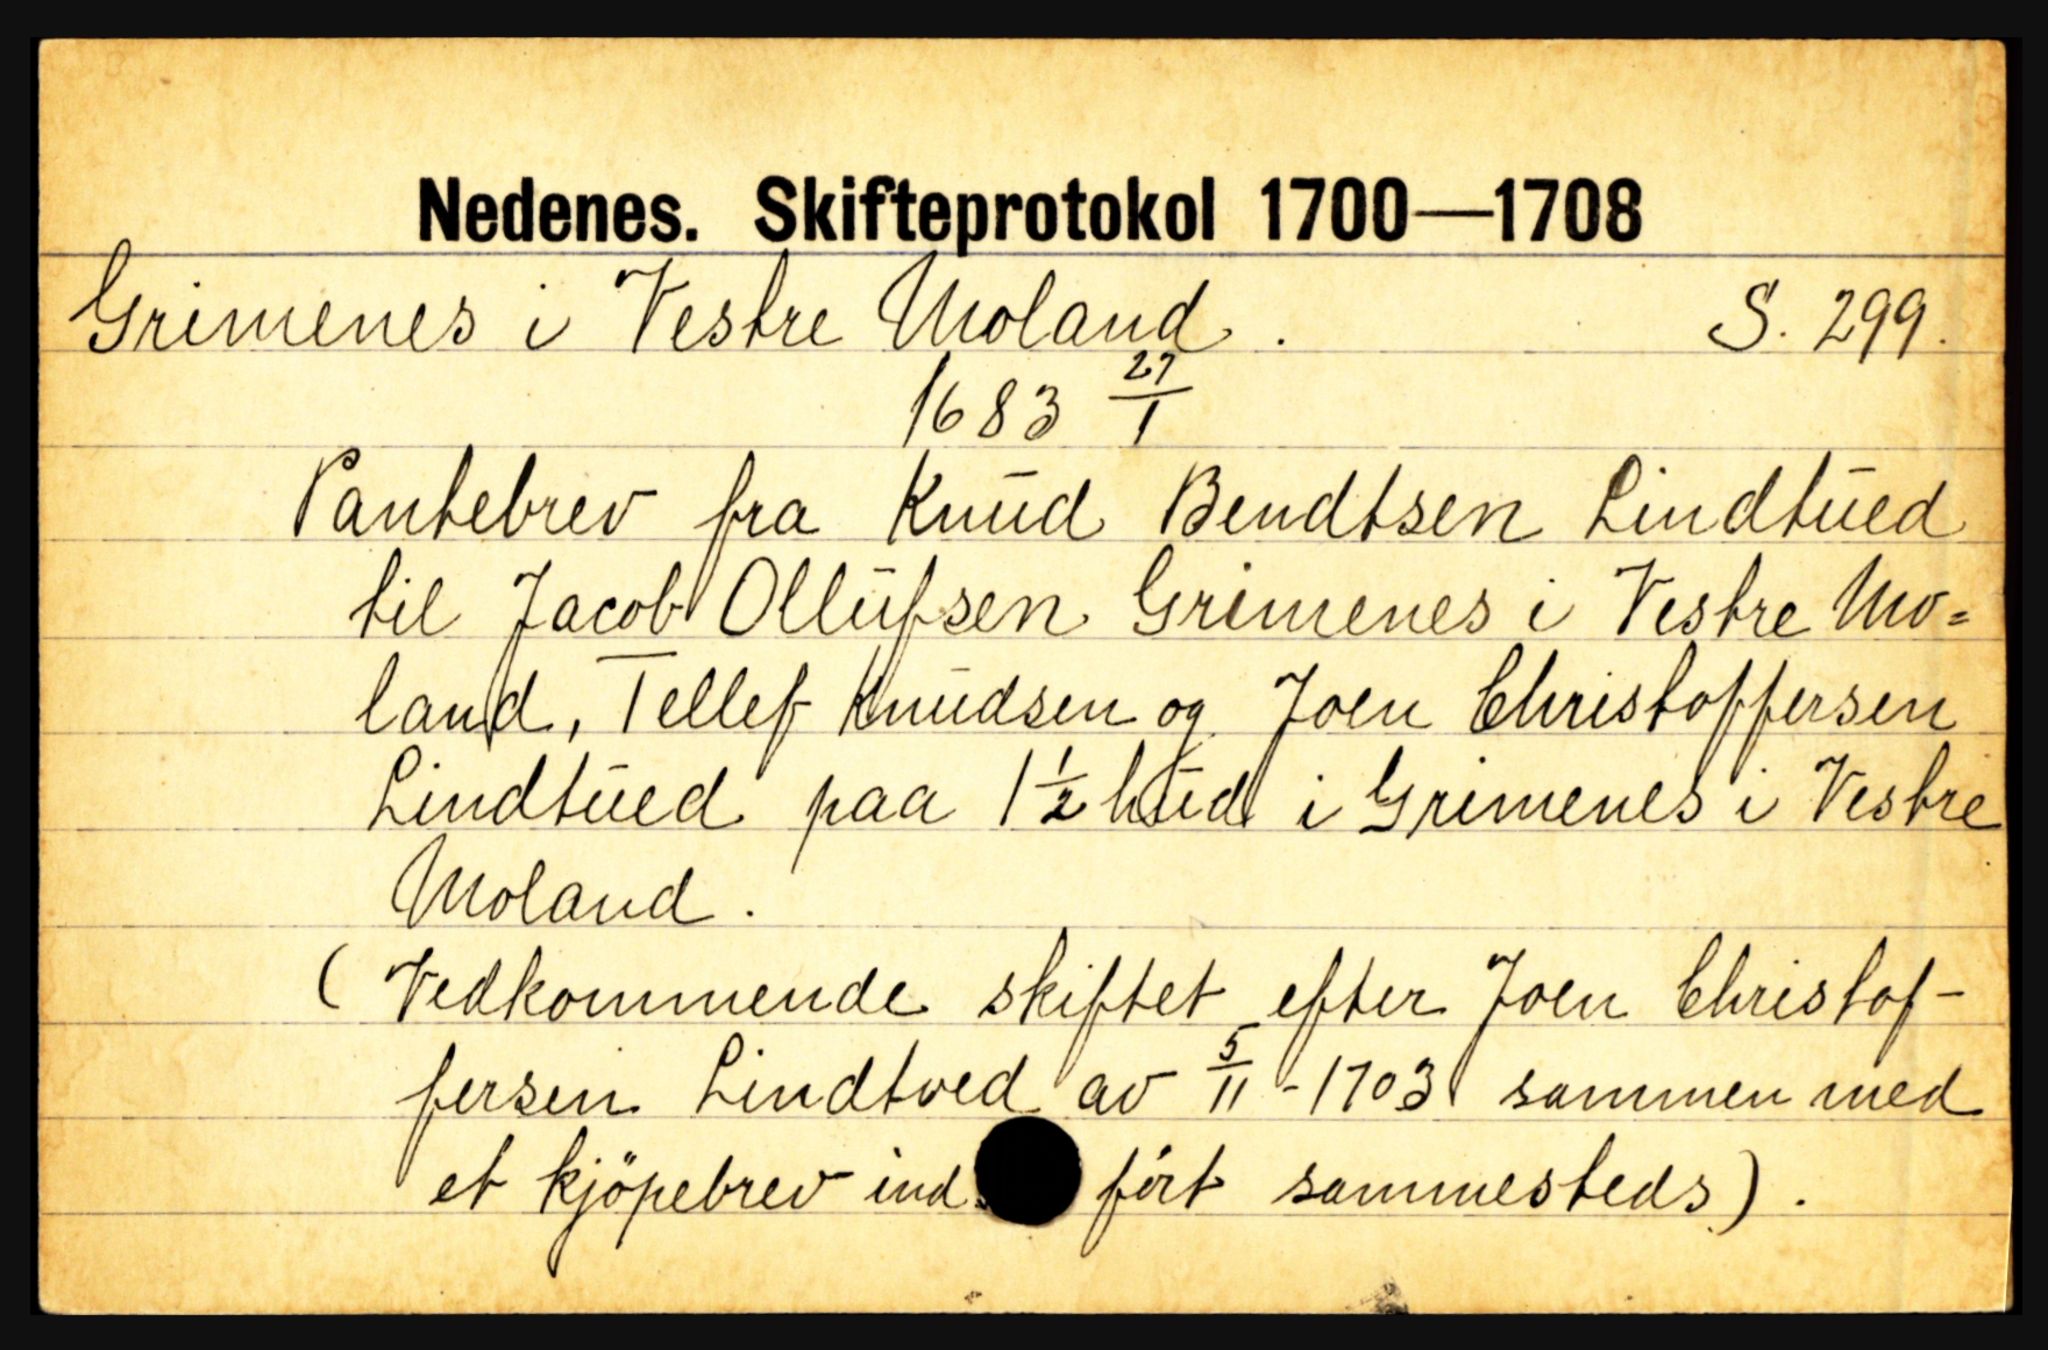 Nedenes. Skifteprotokol 1700—1708
Grimenes i Vestre Moland. S. 299.
1683 27/1
Pantebrev fra Knūd Bendtsen Lindtūed
til Jacob Ollūfsen Grimenes i Vestre Mo=
land, Tellef Knūdsen og Joen Christoffersen
Lindtūed paa 1 1/2 hūd i Grimenes i Vestre
Moland.
(Vedkommende skiftet efter Joen Christof-
fersen Lindtved av 5/11 - 1703 sammen med
et kjöpebrev ind ført sammesteds).